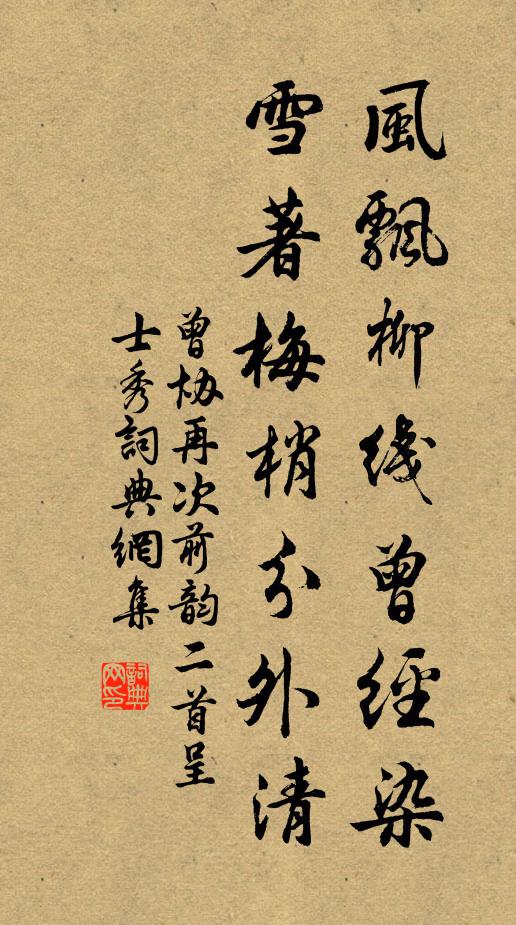 風飄柳綫曾經染
雪著梅梢分外清
曾協再次前韵二首呈
士秀詞典網集
詞典網印